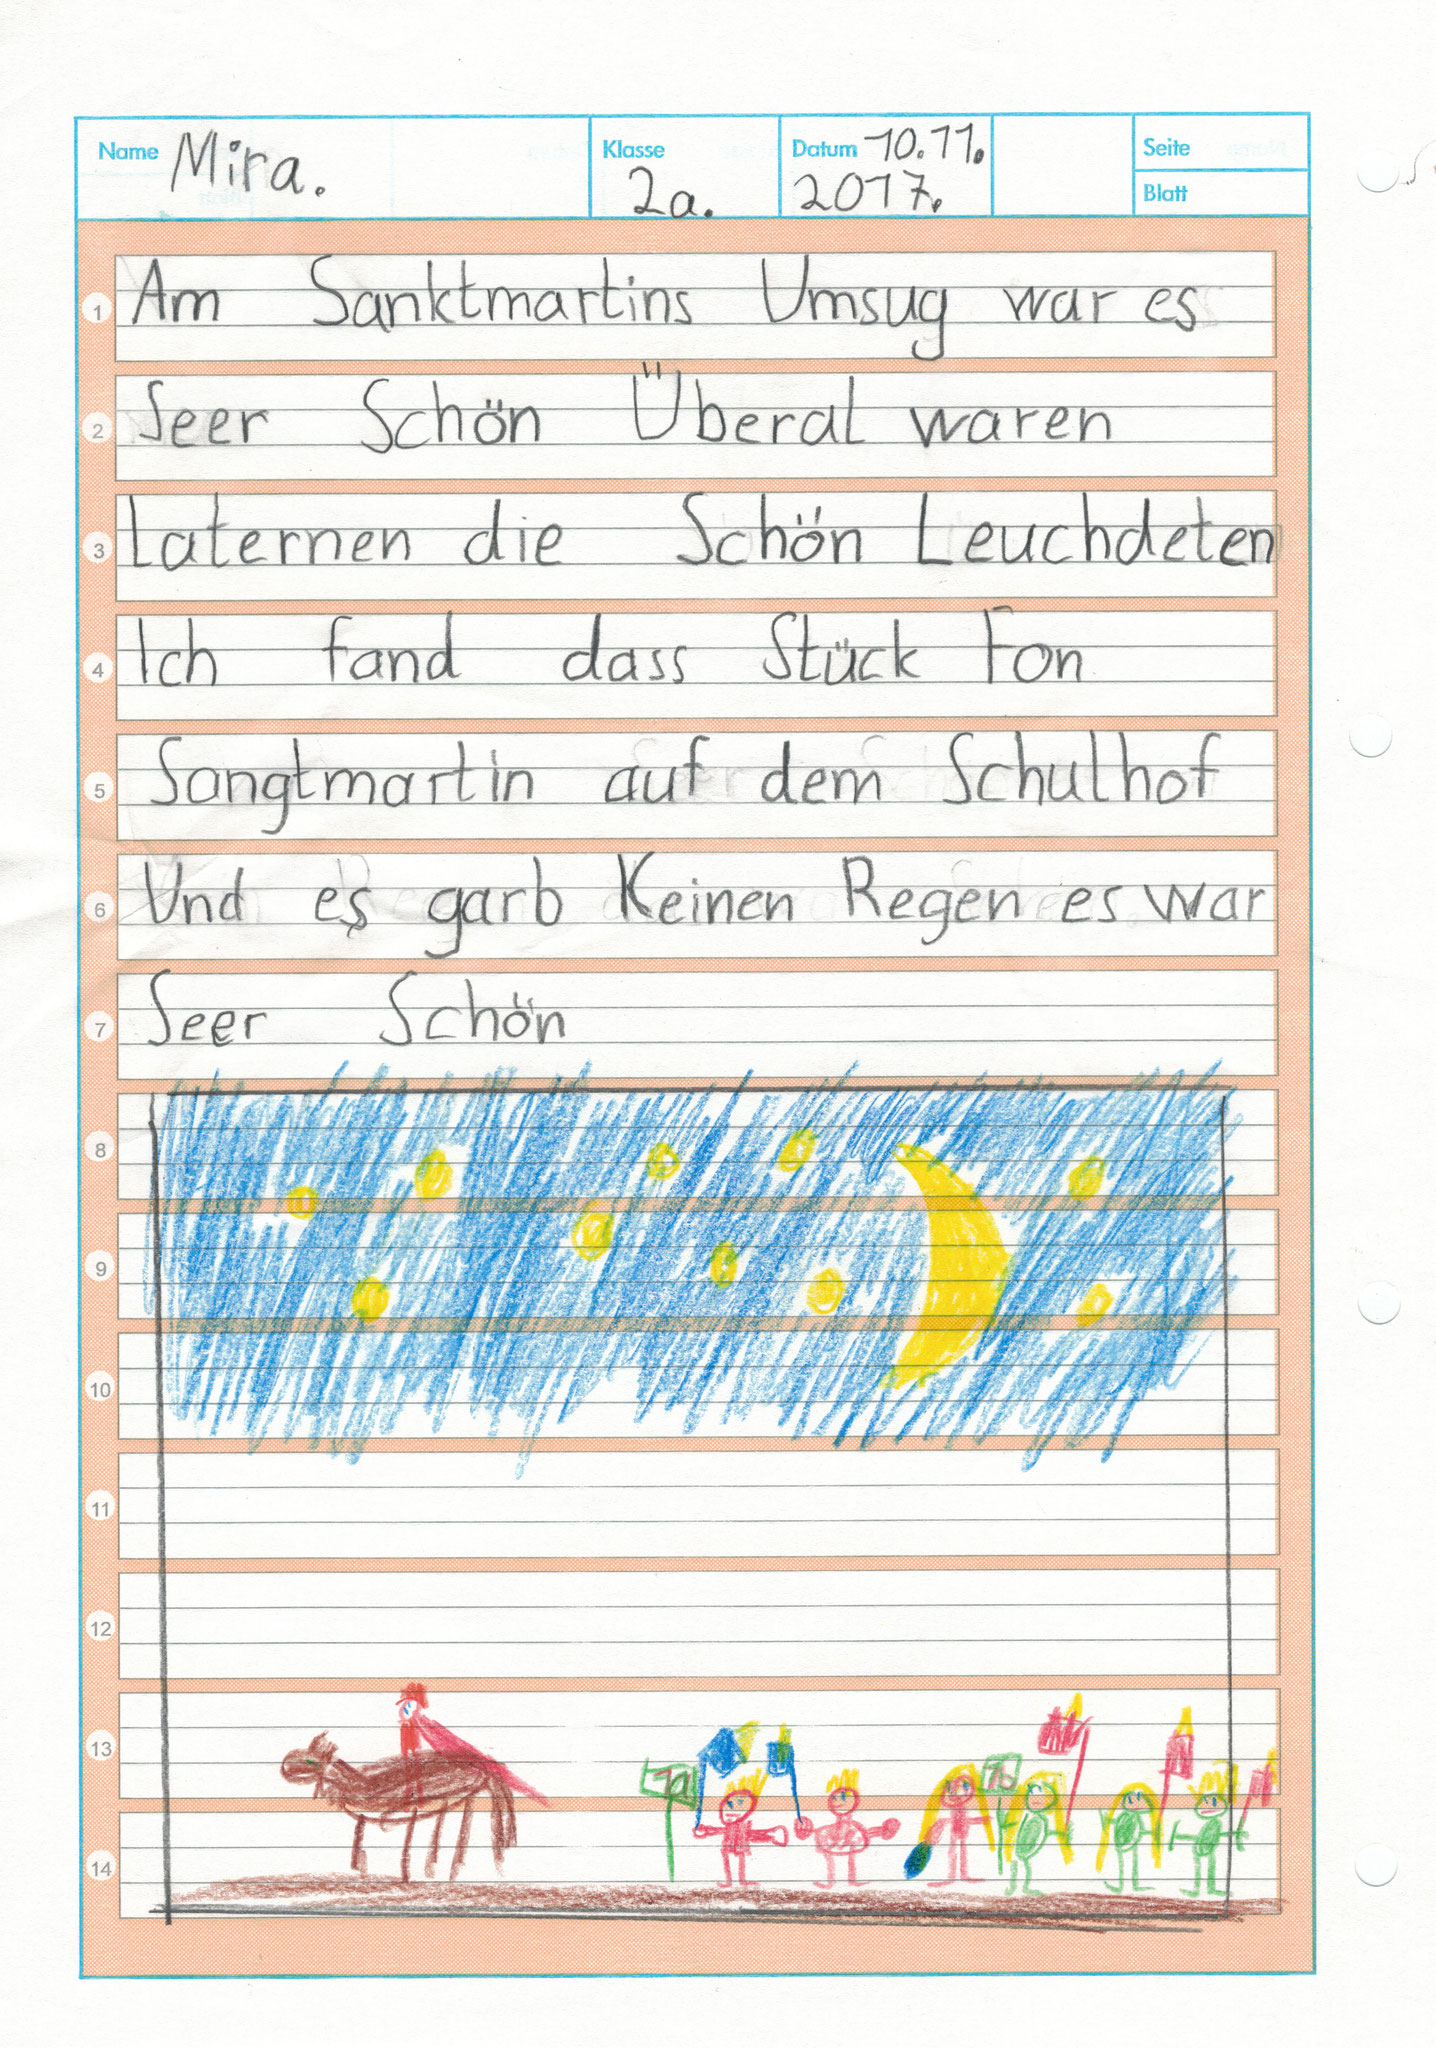 Name Mira. Klasse 2a. Datum 10.11. 2017. Seite Blatt
1 Am Sanktmartins Umsug war es
2 Seer Schön Überal waren
3 Laternen die Schön Leuchdeten
4 Ich fand dass Stück Fon
5 Sangtmartin auf dem Schulhof
6 Und es garb Keinen Regen es war
7 Seer Schön
8
9
10
11
12
13
14
1a 1b